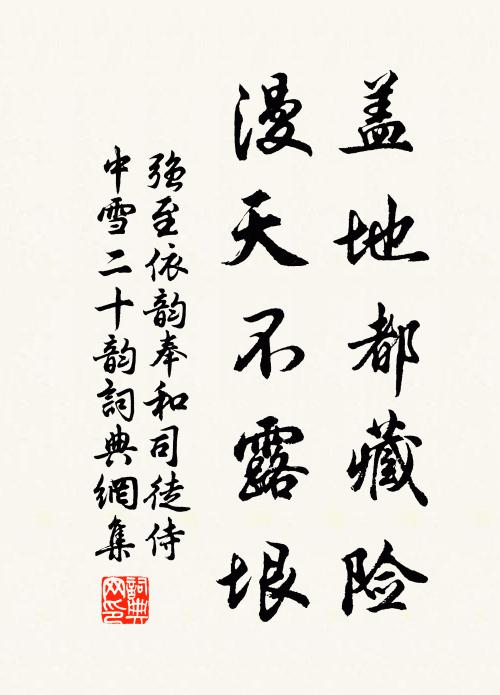 盖地都藏险
漫天不露垠
强至依韵奉和司徒侍
中雪二十韵詞典網集
詞典网印